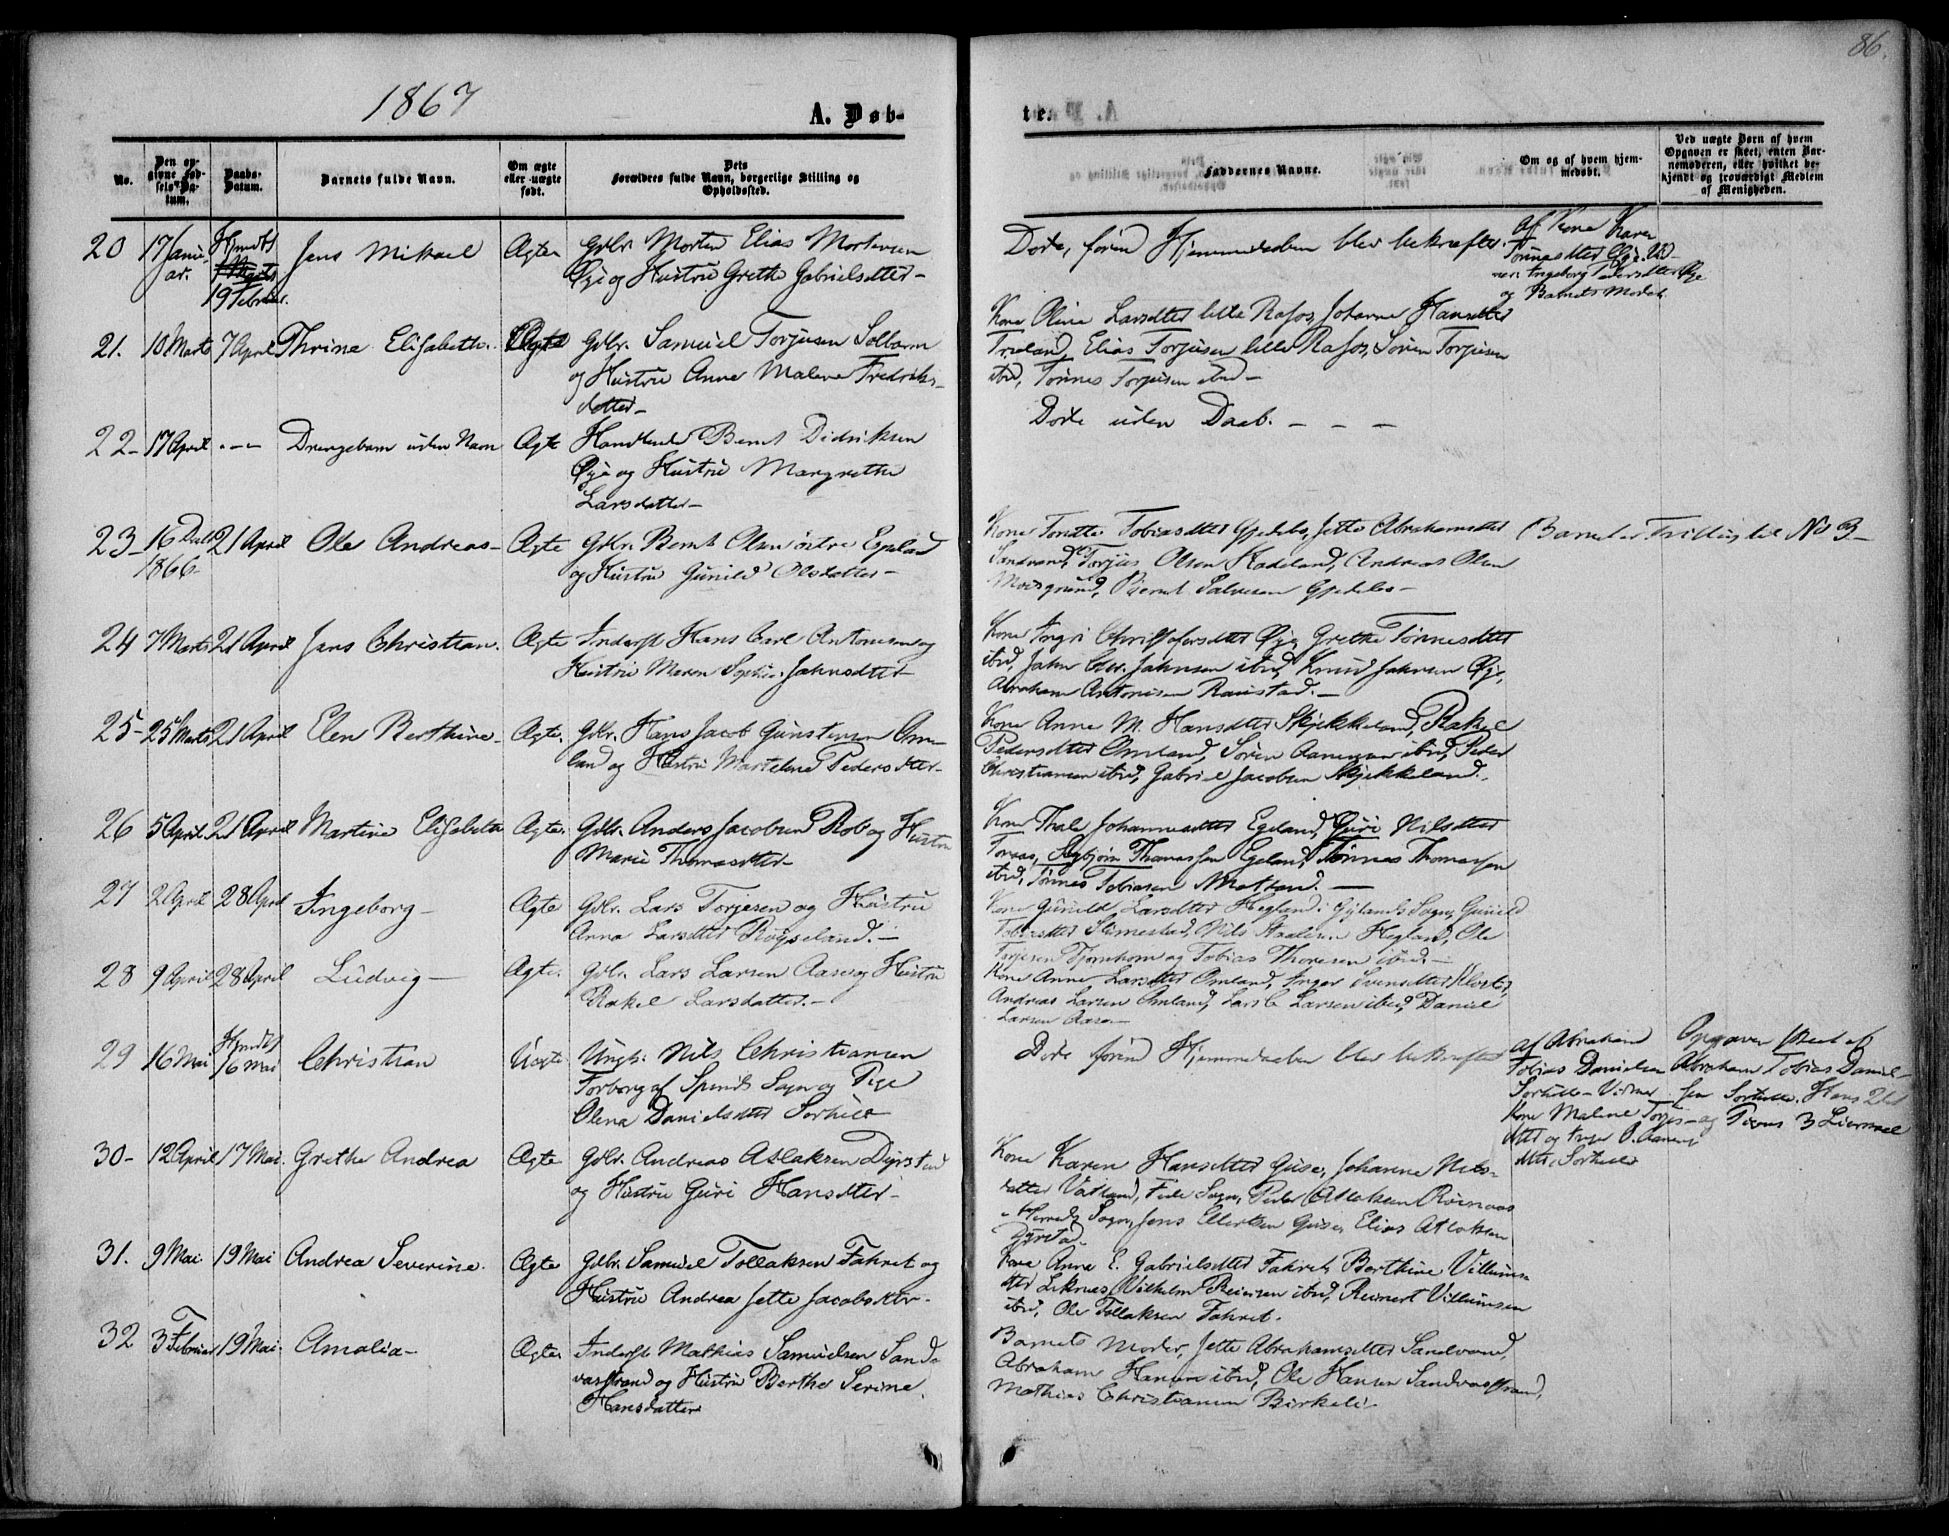 86.
1867
A. Døb-
te.
No.
Den op-
givne Fød-
sels-Da-
tum.
Daabs-
Datum.
Barnets fulde Navn.
Om ægte
eller uægte
født.
Dets
Forældres fulde Navn, borgerlige Stilling og
Opholdssted.
Faddernes Navne.
Om og af hvem hjem-
medøbt.
Ved uægte Børn af hvem
Opgaven er skeet, enten Bar-
nemoderen, eller hvilket be-
kjendt og troværdigt Medlem
af Menigheden.
20 17 Janu-
ar.
19 Februar.
Jens Mikael
Ægte
Gdbr. Morten Elias Mortensen
Øye og Hustru Grethe Gabrielsdtter
Døde, førend Hjemmedaaben blev bekræftet.
af Kone Karen
Tønnesdtter Øye. Vid-
ner: Ingeborg Pedersdtter Øye
og Barnets Moder
21. 10 Marts 7 April Thrine Elisabeth. Ægte
Gdbr. Samuel Torjusen Solbarm
og Hustru Anne Malene Fredriks-
datter
Kone Oline Larsdtter lille Rafos, Johanne Hansdtter
Træland, Elias Torjusen lille Rafos, Søren Torjusen
ibid, Tønnes Torjusen ibid
22 17 April - - - Drengebarn uden Navn Ægte
Bernt Didriksen
Øye og Hustru Margrethe
Larsdatter
Døde uden Daab. - - -
23 16 Decbr 21 April Ole Andreas Ægte
1866
Gdbr. Bernt Olsen østre Egeland
og Hustru Gunild Olsdatter
Kone Tonette Tobiasdtter Gjedebo, Jette Abrahamsdtter
Sandvand, Torjus Olsen Kadeland, Andreas Olsen
Moisgrund, Bernt Salvesen Gjedebo
Barnet er Trilling til No 3
24 7 Marts 21 April Jens Christian. Ægte
Inderst Hans Carl Antonsen og
Hustru Maren Sophie Jahnsdtter
Kone Ingri Christofersdtter Øye, Grethe Tønnesdtter
ibid, Jahn Chr. Jahnsen ibid, Knud Jahnsen Øye,
Abraham Antonisen Raustad.
25 25 Marts 21 April Elen Berthine Ægte.
Gdbr. Hans Jacob Gunstensen Om-
land og Hustru Martelene Pedersdtter
Kone Anne M. Hansdtter Skjekkeland, Rakel
Pedersdtter Omland, Søren Aanensen ibid, Peder
Christiansen ibid, Gabriel Jacobsen Skjekkeland.
26 5 April 21 April Martine Elisabeth Ægte.
Gdbr. Anders Jacobsen Rob og Hustru
Marie Thomasdtter
Kone Thale Johannesdtter Egeland, Guri Nilsdtter
Asbjørn Thomassen Egeland, Tønnes Thomassen
ibid, Tønnes Tobiasen
27 2 April 28 April Ingeborg Ægte
Gdbr. Lars Torjesen og Hustru
Anna Larsdtter Røyseland.
Kone Gunild Larsdtter Hegland i Gylands Sogn, Gunild
Tobiasdtter Nils Hegland, Ole
Torjesen Tjomhom og Tobias Thoresen ibid.
28 9 April 28 April Ludvig Ægte.
Gdbr. Lars Larsen Aase og Hustru
Rakel Larsdatter.
Kone Anne Larsdtter Omland, Inger Svensdtter Kloster,
Andreas Larsen Omland, Lars L. Larsen ibid, Daniel
Larsen Aase
29 16 Mai Hjmdbt
16 Mai
Christian Uægte
Ungk. Nils Christiansen
Torborg af Spinds Sogn og Pige
Olena Danielsdtter Sorhelle
Døde førend Hjemmedaaben blev bekræftet
af Abraham
Tobias Danielsen
Sorhelle. Vidner
Kone Malene Torjes-
dtter og Inger P. Aanens-
dtter, Sorhelle
Opgaven skeet af
Abraham Tobias Daniel-
sen Sorhelle. Hans 2det
og Pigens 3 Leiermaal
30 12 April 17 Mai. Grethe Andrea Ægte
Gdbr. Andreas Atlaksen Dyrstad
og Hustru Guri Hansdtter
Kone Karen Hansdtter Guse, Johanne Nils-
datter Vatland, Fede Sogn, Peder Atlaksen Røinaas
Sogn, Jens Ellertsen Guse, Elias Atlaksen
Dyrstad
31. 9 Mai 19 Mai Andrea Severine. Ægte
Gdbr. Samuel Tollaksen Fahret og
Hustru Andrea Jette Jacobsdtter
Kone Anna E. Gabrielsdtter Fahret, Berthine Villums-
dtter Leknes, Vilhelm Reiersen ibid, Reinert Villumsen
ibid, Ole Tollaksen Fahret.
32 3 Februar 19 Mai. Amalia Ægte
Inderst Mathias Samuelsen Sand-
vasstrand og Hustru Berthe Serine
Hansdatter
Barnets Moder, Jette Abrahamsdtter Sandvand,
Abraham Hansen ibid, Ole Hansen Sandvasstrand,
Mathias Christiansen Birkeli.